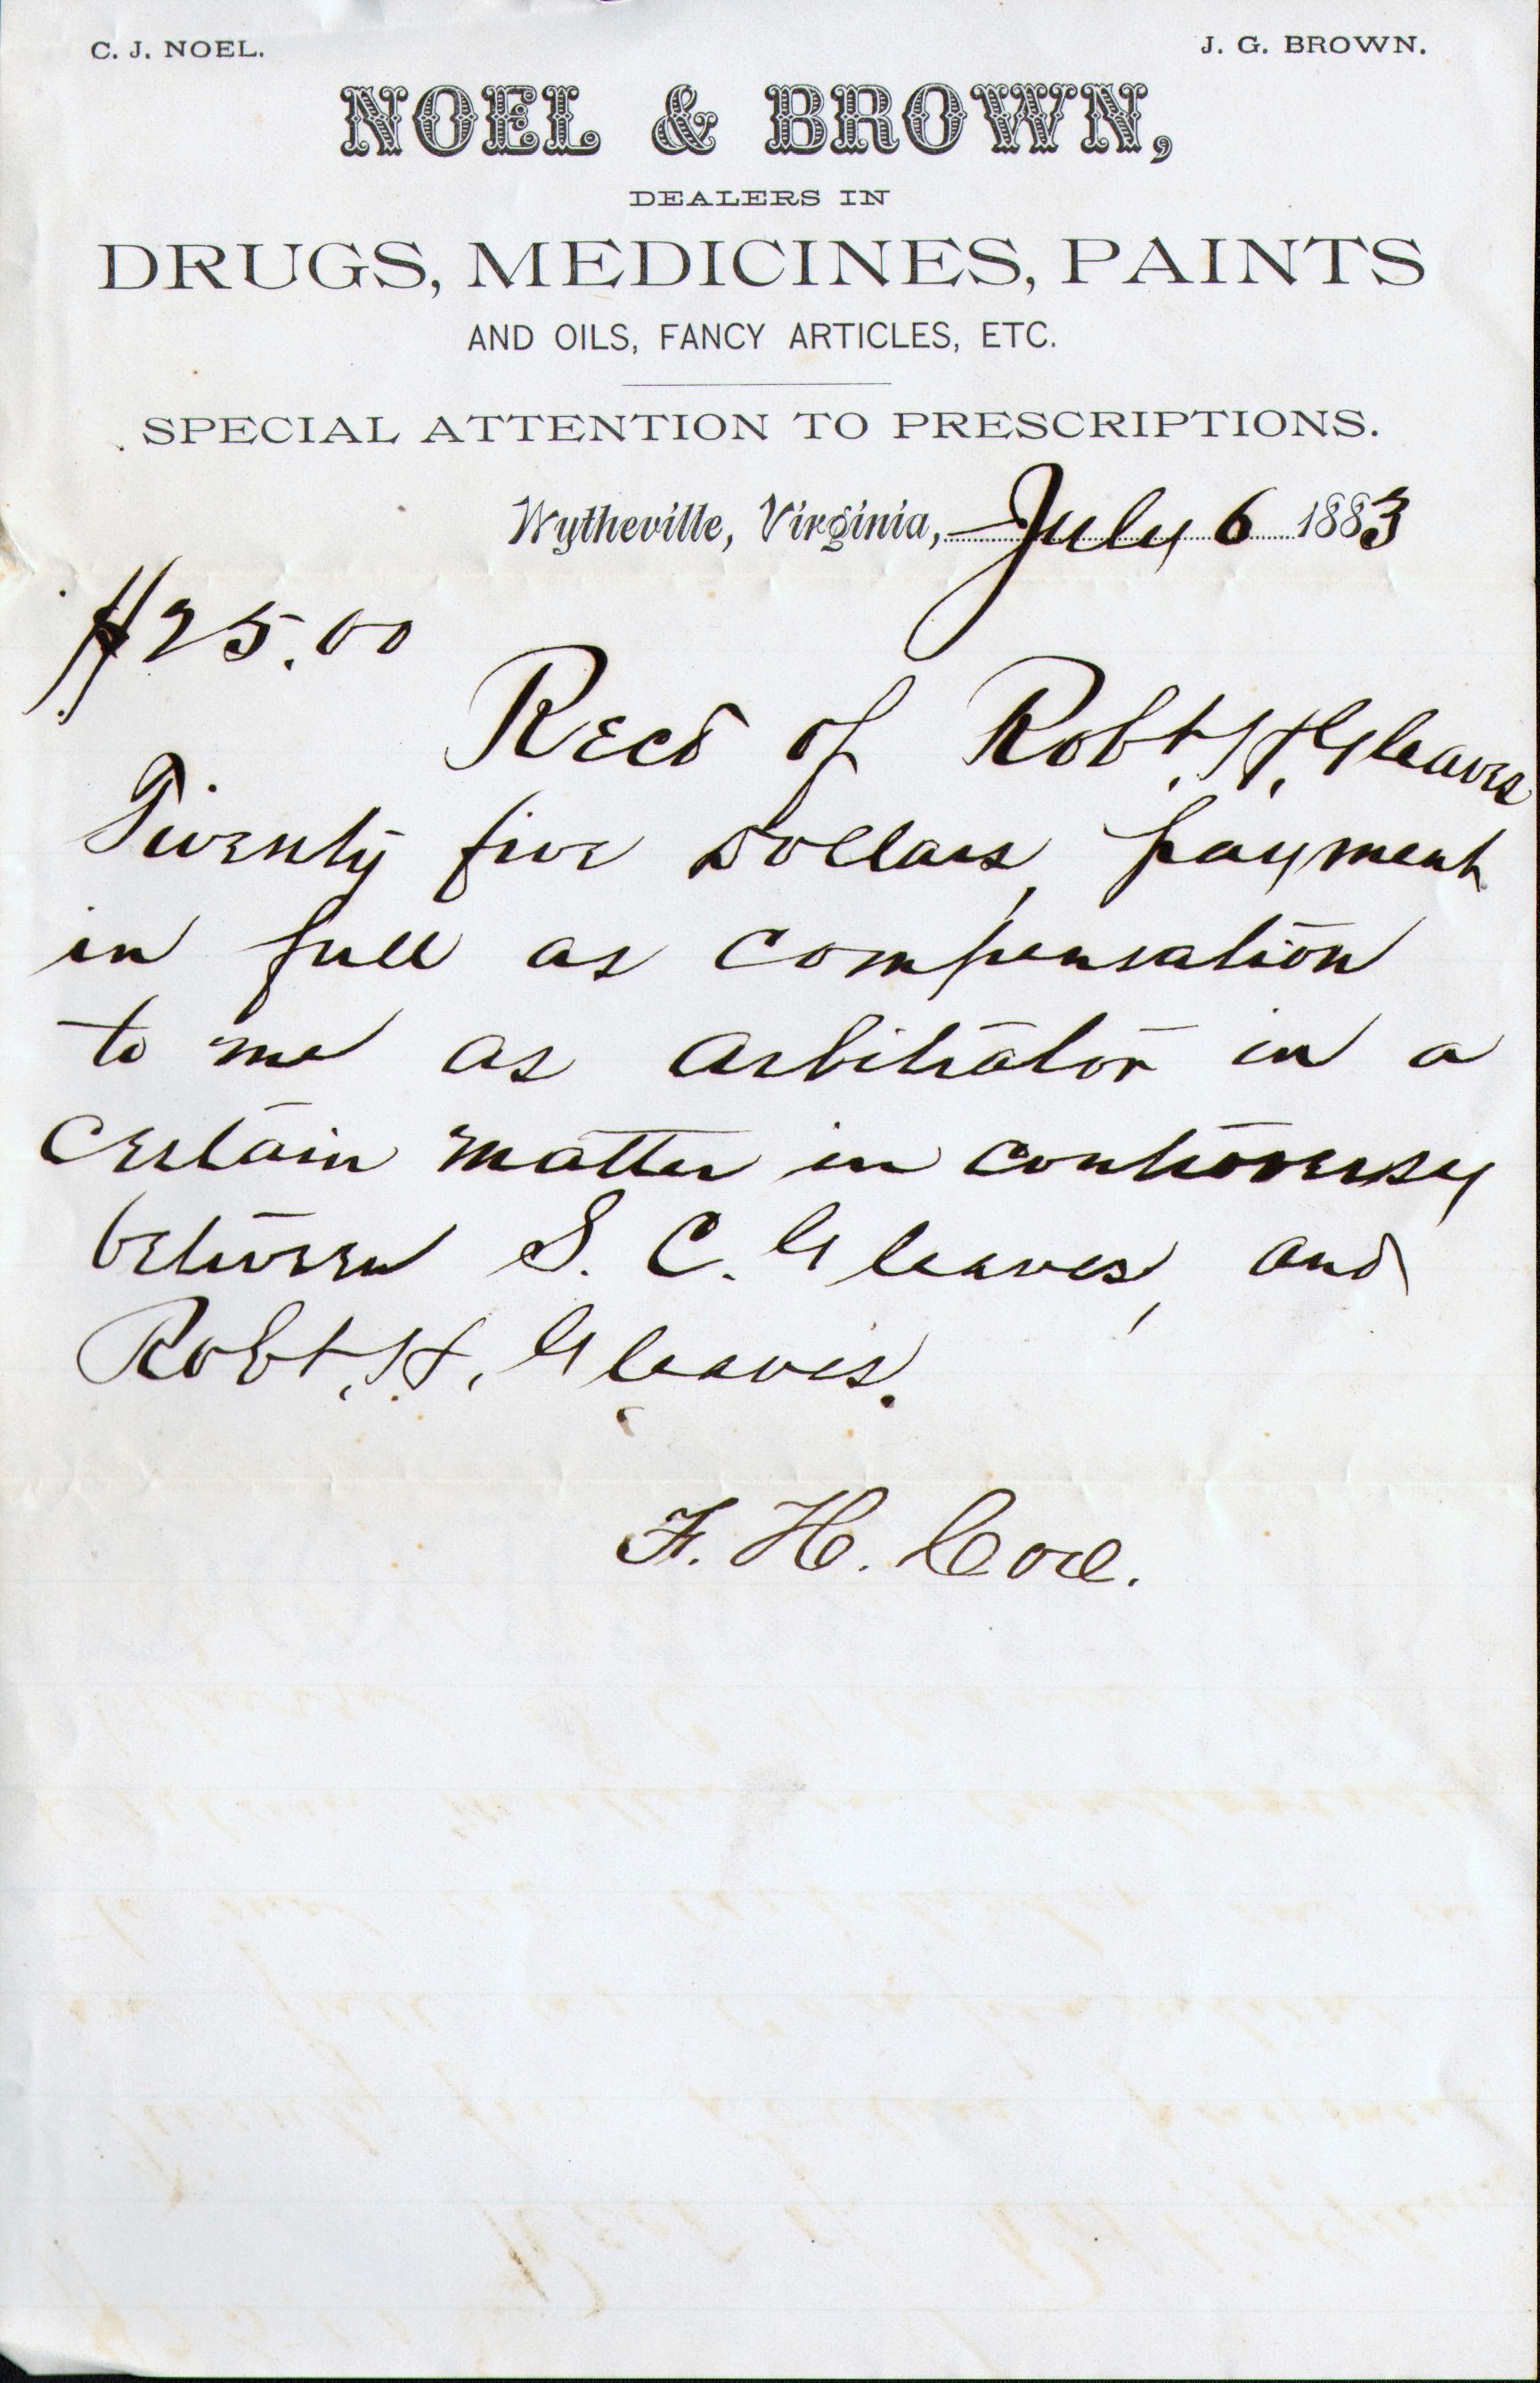 C. J. NOEL. J. G. BROWN.
NOEL & BROWN,
DEALERS IN
DRUGS, MEDICINES, PAINTS
AND OILS, FANCY ARTICLES, ETC.
SPECIAL ATTENTION TO PRESCRIPTIONS.
Wytheville, Virginia, July 6 1883
$25.00
Recd of Robt. H. Gleaves
Twenty five Dollars, payment
in full as compensation
to me as arbitrator in a
certain matter in controversy
between S. C. Gleaves, and
Robt. H. Gleaves.
F. H. Coxe.